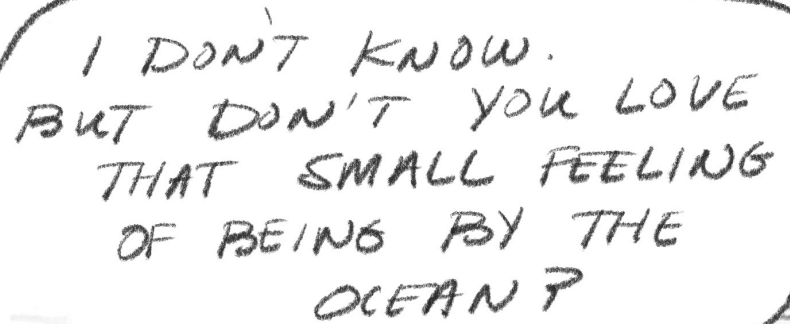 I DON'T KNOW.
BUT DON'T YOU LOVE
THAT SMALL FEELING
OF BEING BY THE
OCEAN?